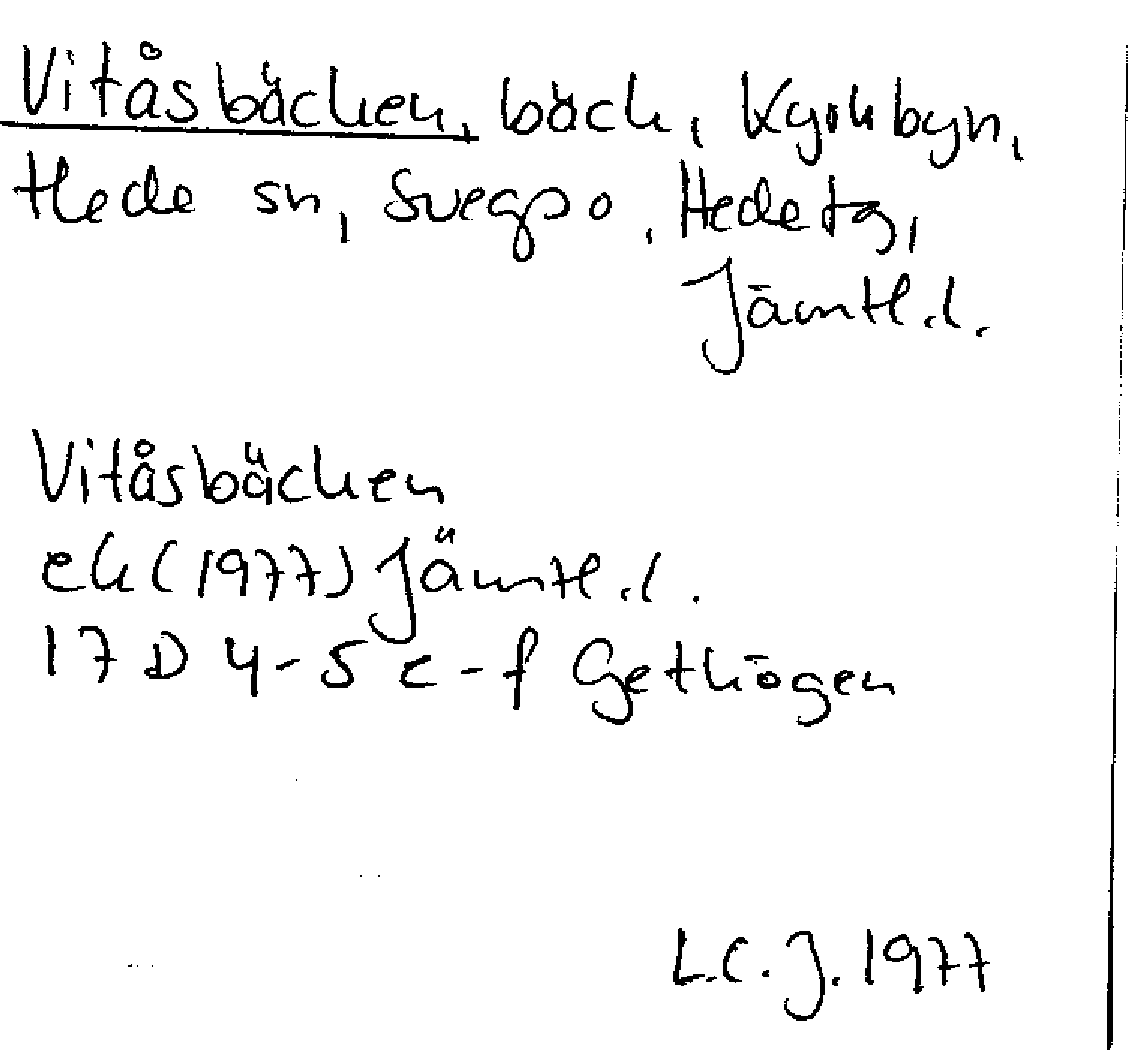 Vitåsbäcken, bäck, Kyrkbyn,
Hede sn, Svegs po, Hede tg,
Jämtl. l.
Vitåsbäcken
ek (1977) Jämtl. l.
17 D 4-5 e-f Gethögen
L.C.J. 1977